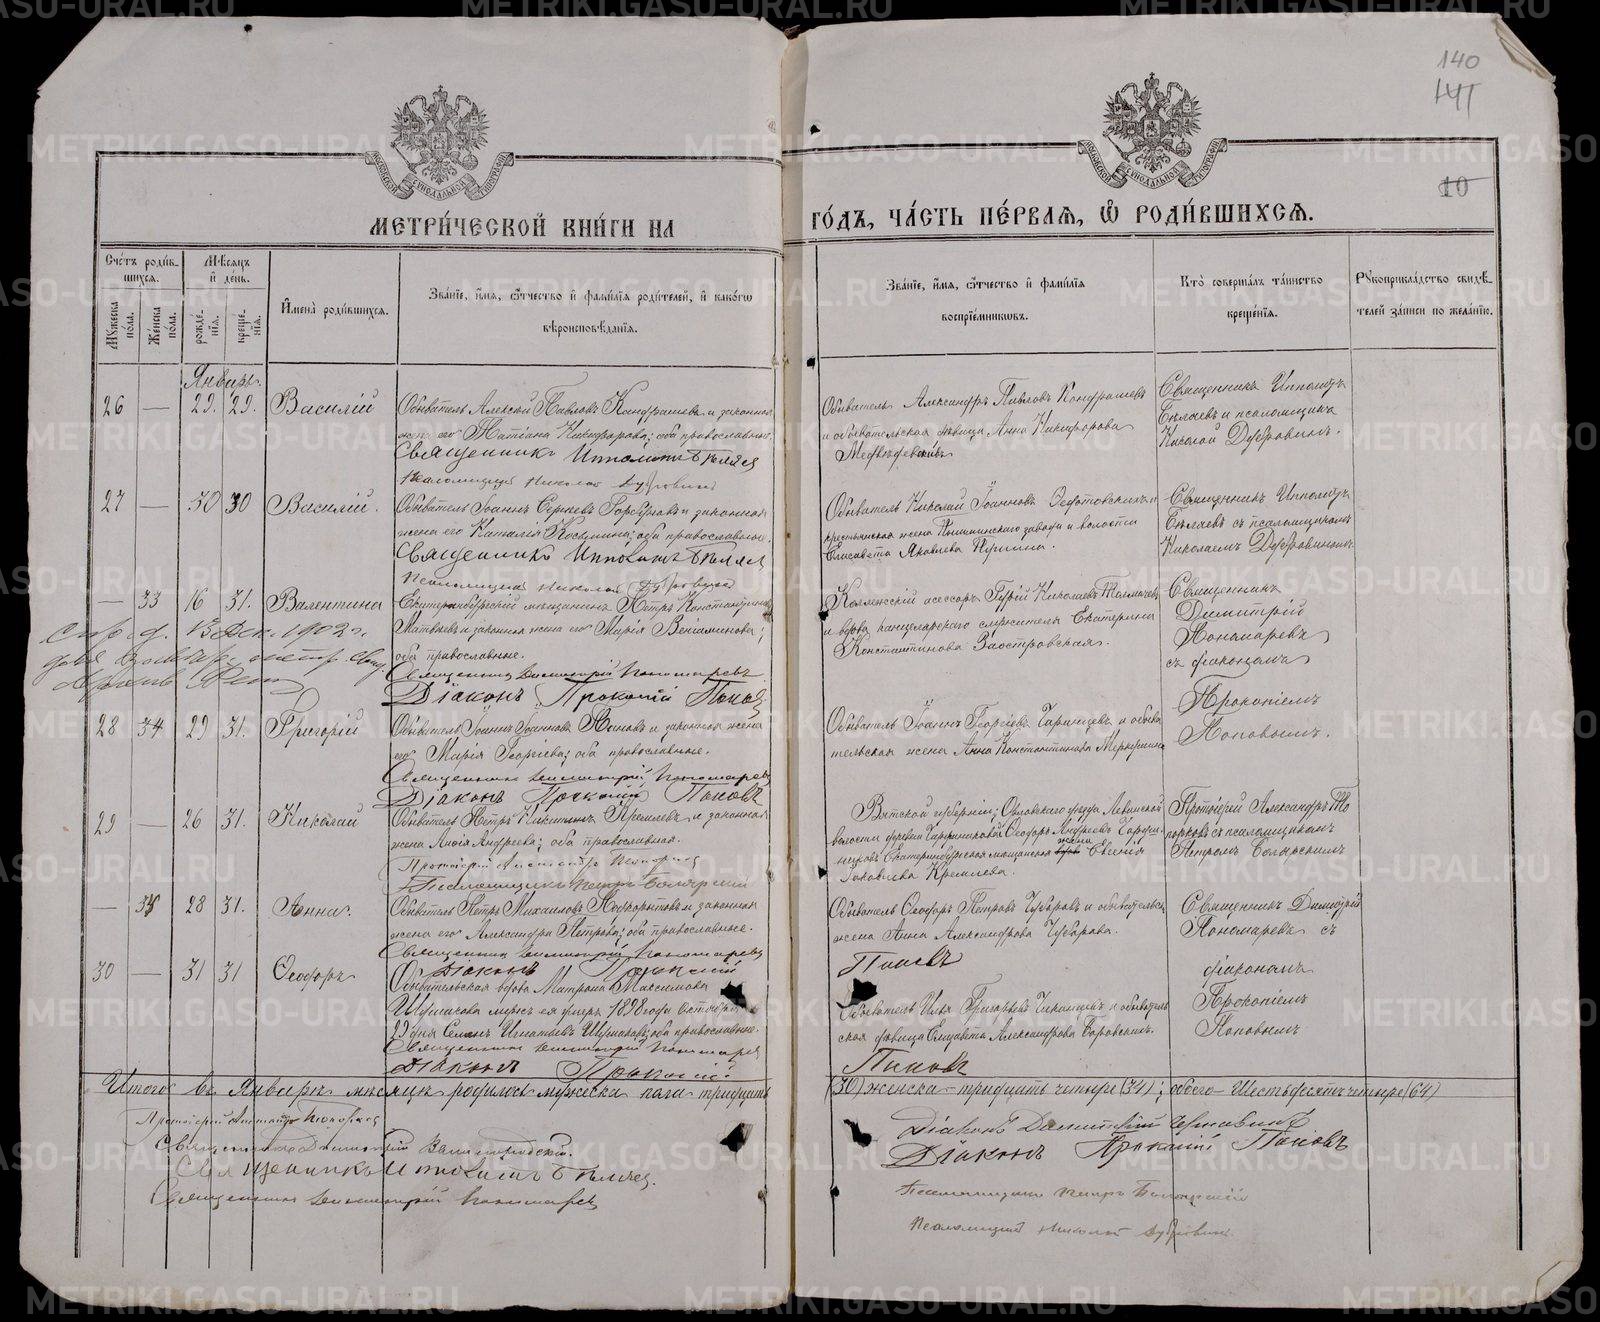 140
141
10
МОСКОВСКОЙ СѴНОДАЛЬНОЙ ТИПОГРАФІИ
МОСКОВСКОЙ СѴНОДАЛЬНОЙ ТИПОГРАФІИ
МЕТРИ́ЧЕСКОЙ КНИ́ГИ НА ГО́ДЪ, ЧА́СТЬ ПЕ́РВАѦ, Ѡ҆ РОДИ́ВШИХСѦ.
Сче́тъ роди́вшихся.
Мѣ́сяцъ и҆ де́нь.
Му́жеска по́ла.
Же́нска по́ла.
рожде́нїя.
креще́нїя.
И҆мена̀ роди́вшихся.
Зва́нїе, и҆́мя, ѻ҆́тчество и҆ фами́лїя роди́телей, и҆ како́гѡ вѣроисповѣ́данїя.
Зва́нїе, и҆́мя, ѻ҆́тчество и҆ фами́лїя воспрїе́мниковъ.
Кто̀ соверша́лъ та́инство креще́нїя.
Рукоприкла́дство свидѣ́телей за́писи по жела́нїю.
Январь.
26 — 29. 29. Василій
Обыватель Алексѣй Павловъ Кондрашевъ и законная
жена его Татіана Никифорова; оба православные.
Священникъ Ипполитъ Бѣляев
Псаломщикъ Николай Дубровинъ
Обыватель Александръ Павловъ Кондрашевъ
и обывательская дѣвица Анна Никифорова
Священникъ Ипполитъ
Бѣляевъ и псаломщикъ
Николай Дубровинъ.
27 — 30 30 Василій.
Обыватель Іоаннъ Сергѣевъ и законная
жена его Наталія Косьмина; оба православные.
Священникъ Ипполитъ Бѣляев
Псаломщикъ Николай Дубровинъ
Обыватель Николай Іоанновъ и
крестьянская жена Нышминскаго завода и волости
Елисавета Яковлева
Священникъ Ипполитъ
Бѣляевъ съ псаломщикомъ
Николаемъ Дубровинымъ
— 33 16 31. Валентина
Екатеринбургскій мѣщанинъ Петръ Константиновъ
Матвѣевъ и законная жена его Марія Веніаминова;
оба православные.
Священникъ Димитрій Пономаревъ
Діаконъ Прокопій Попов
13 Дек. 1902 г.
Коллежскій асессоръ Гурій Николаевъ Толмачевъ
и вдова канцелярскаго служителя Екатерина
Константинова Заостровская.
Священникъ
Димитрій
Пономаревъ
съ діакономъ
Прокопіемъ
Поповымъ.
28 34 29 31. Григорій
Обыватель Іоаннъ Іоанновъ и законная жена
его Марія Георгіева; оба православные.
Священникъ Димитрій Пономаревъ
Діаконъ Прокопій Поповъ
Обыватель Іоаннъ Георгіевъ и обыва
тельская жена Анна Константинова
29 — 26 31. Николай
Обыватель Петръ Никитинъ Кремлевъ и законная
жена Лидія Андреева; оба православные.
Протоіерей Александръ Топорковъ
Псаломщикъ Петръ Боярскій
Вятской губерніи, Орловскаго уѣзда
волости деревни Ѳеодоръ Андреевъ
Екатеринбургская мѣщанская жена Евгенія
Іаковлева Кремлева.
Протоіерей Александръ То
порковъ съ псаломщикомъ
Петромъ Боярскимъ
— 35 28 31. Анна.
Обыватель Петръ Михаиловъ и законная
жена его Александра Петрова; оба православные.
Священникъ Димитрій Пономаревъ
Діаконъ Прокопій Поповъ
Обыватель Ѳеодоръ Петровъ Чубаровъ и обывательск.
жена Анна Александрова Чубарова.
Священникъ Димитрій
Пономаревъ съ
діакономъ
Прокопіемъ
Поповымъ
30 — 31 31 Ѳеодоръ
Обывательская вдова Матрона Максимова
Шушакова мужъ ея умеръ 1898 года Октября
29 дня Семенъ Игнатьевъ Шушаковъ; оба православные.
Священникъ Димитрій Пономарев
Діаконъ Прокопій Поповъ
Обыватель Илья Григорьевъ и обыватель
ская дѣвица Елизавета Александрова Боровскихъ.
Итого въ Январѣ мѣсяцѣ родилось мужеска пола тридцать (30) женска — тридцать четыре (34); обоего — шестьдесятъ четыре (64)
Протоіерей Александръ Топорков
Священникъ Димитрій
Священникъ Ипполитъ Бѣляев.
Священникъ Димитрій Пономаревъ
Діаконъ Димитрій
Діаконъ Прокопій Поповъ
Псаломщикъ Петръ Боярскій
Псаломщикъ Николай Дубровин.
METRIKI.GASO-URAL.RU